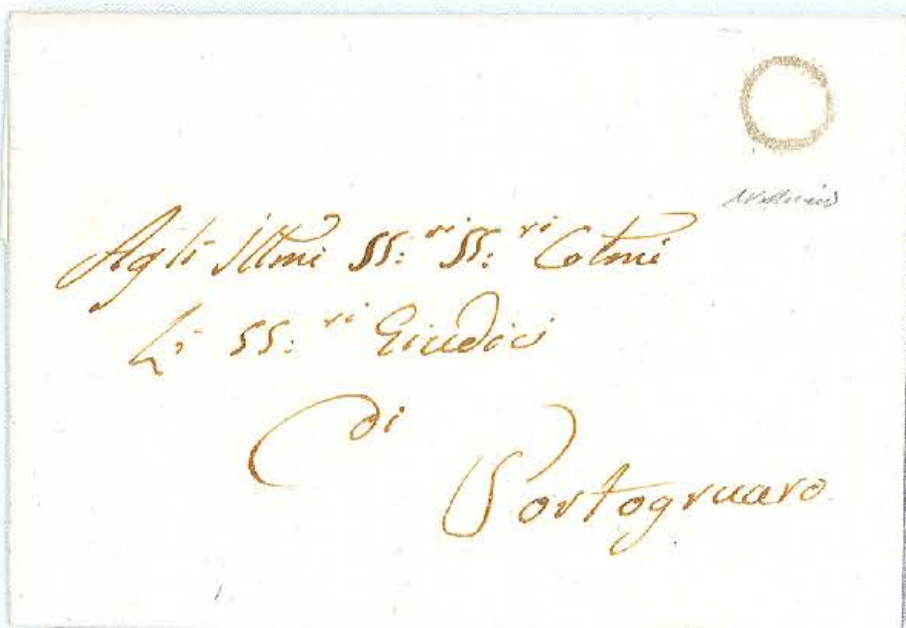 Agli Illmi SS:ri SS:ri Colmi
Li SS:ri Giudici
di
Portogruaro